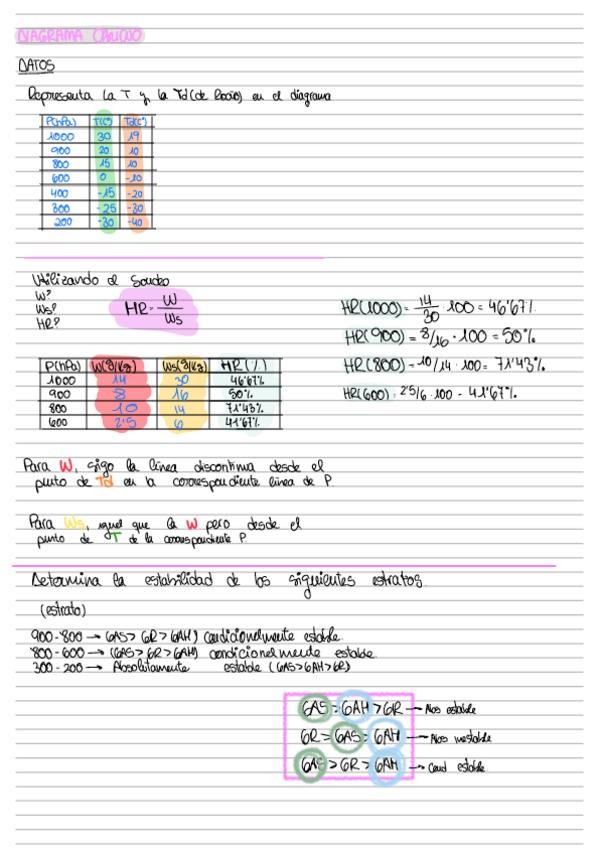 DIAGRAMA OBLICUO
DATOS
Representa la T y la Td (de Rocío) en el diagrama
P(hPa) T(Cº) Td(Cº)
1000 30 19
900 20 10
800 15 10
600 0 -10
400 -15 -20
300 -25 -30
200 -30 -40
Utilizando el Sondeo
W?
Ws?
HR?
HR = W / Ws
HR(1000) = 14/30 · 100 = 46'67%
HR(900) = 8/16 · 100 = 50%
HR(800) - 10/14 · 100 = 71'43%
HR(600) = 2'5/6 · 100 - 41'67%
P(hPa) W(g/Kg) Ws(g/Kg) HR(%)
1000 14 30 46'67%
900 8 16 50%
800 10 14 71'43%
600 2'5 6 41'67%
Para W, sigo la línea discontinua desde el
punto de Td en la correspondiente línea de P.
Para Ws, igual que la W pero desde el
punto de T de la correspondiente P.
Determina la estabilidad de los siguientes estratos
(estrato)
900-800 → GAS > GR > GAH) condicionalmente estable
800-600 → (GAS > GR > GAH) condicionalmente estable
300-200 → Absolutamente estable (GAS>GAH>GR)
GAS > GAH > GR → Abs estable
GR > GAS > GAH → Abs inestable
GAS > GR > GAH → Cond estable